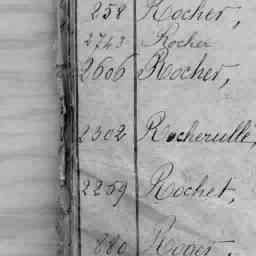 258 Rocher,
2743 Rocher
2606 Rocher,
2302 Rocherullé,
2259 Rochet,
880 Roger,